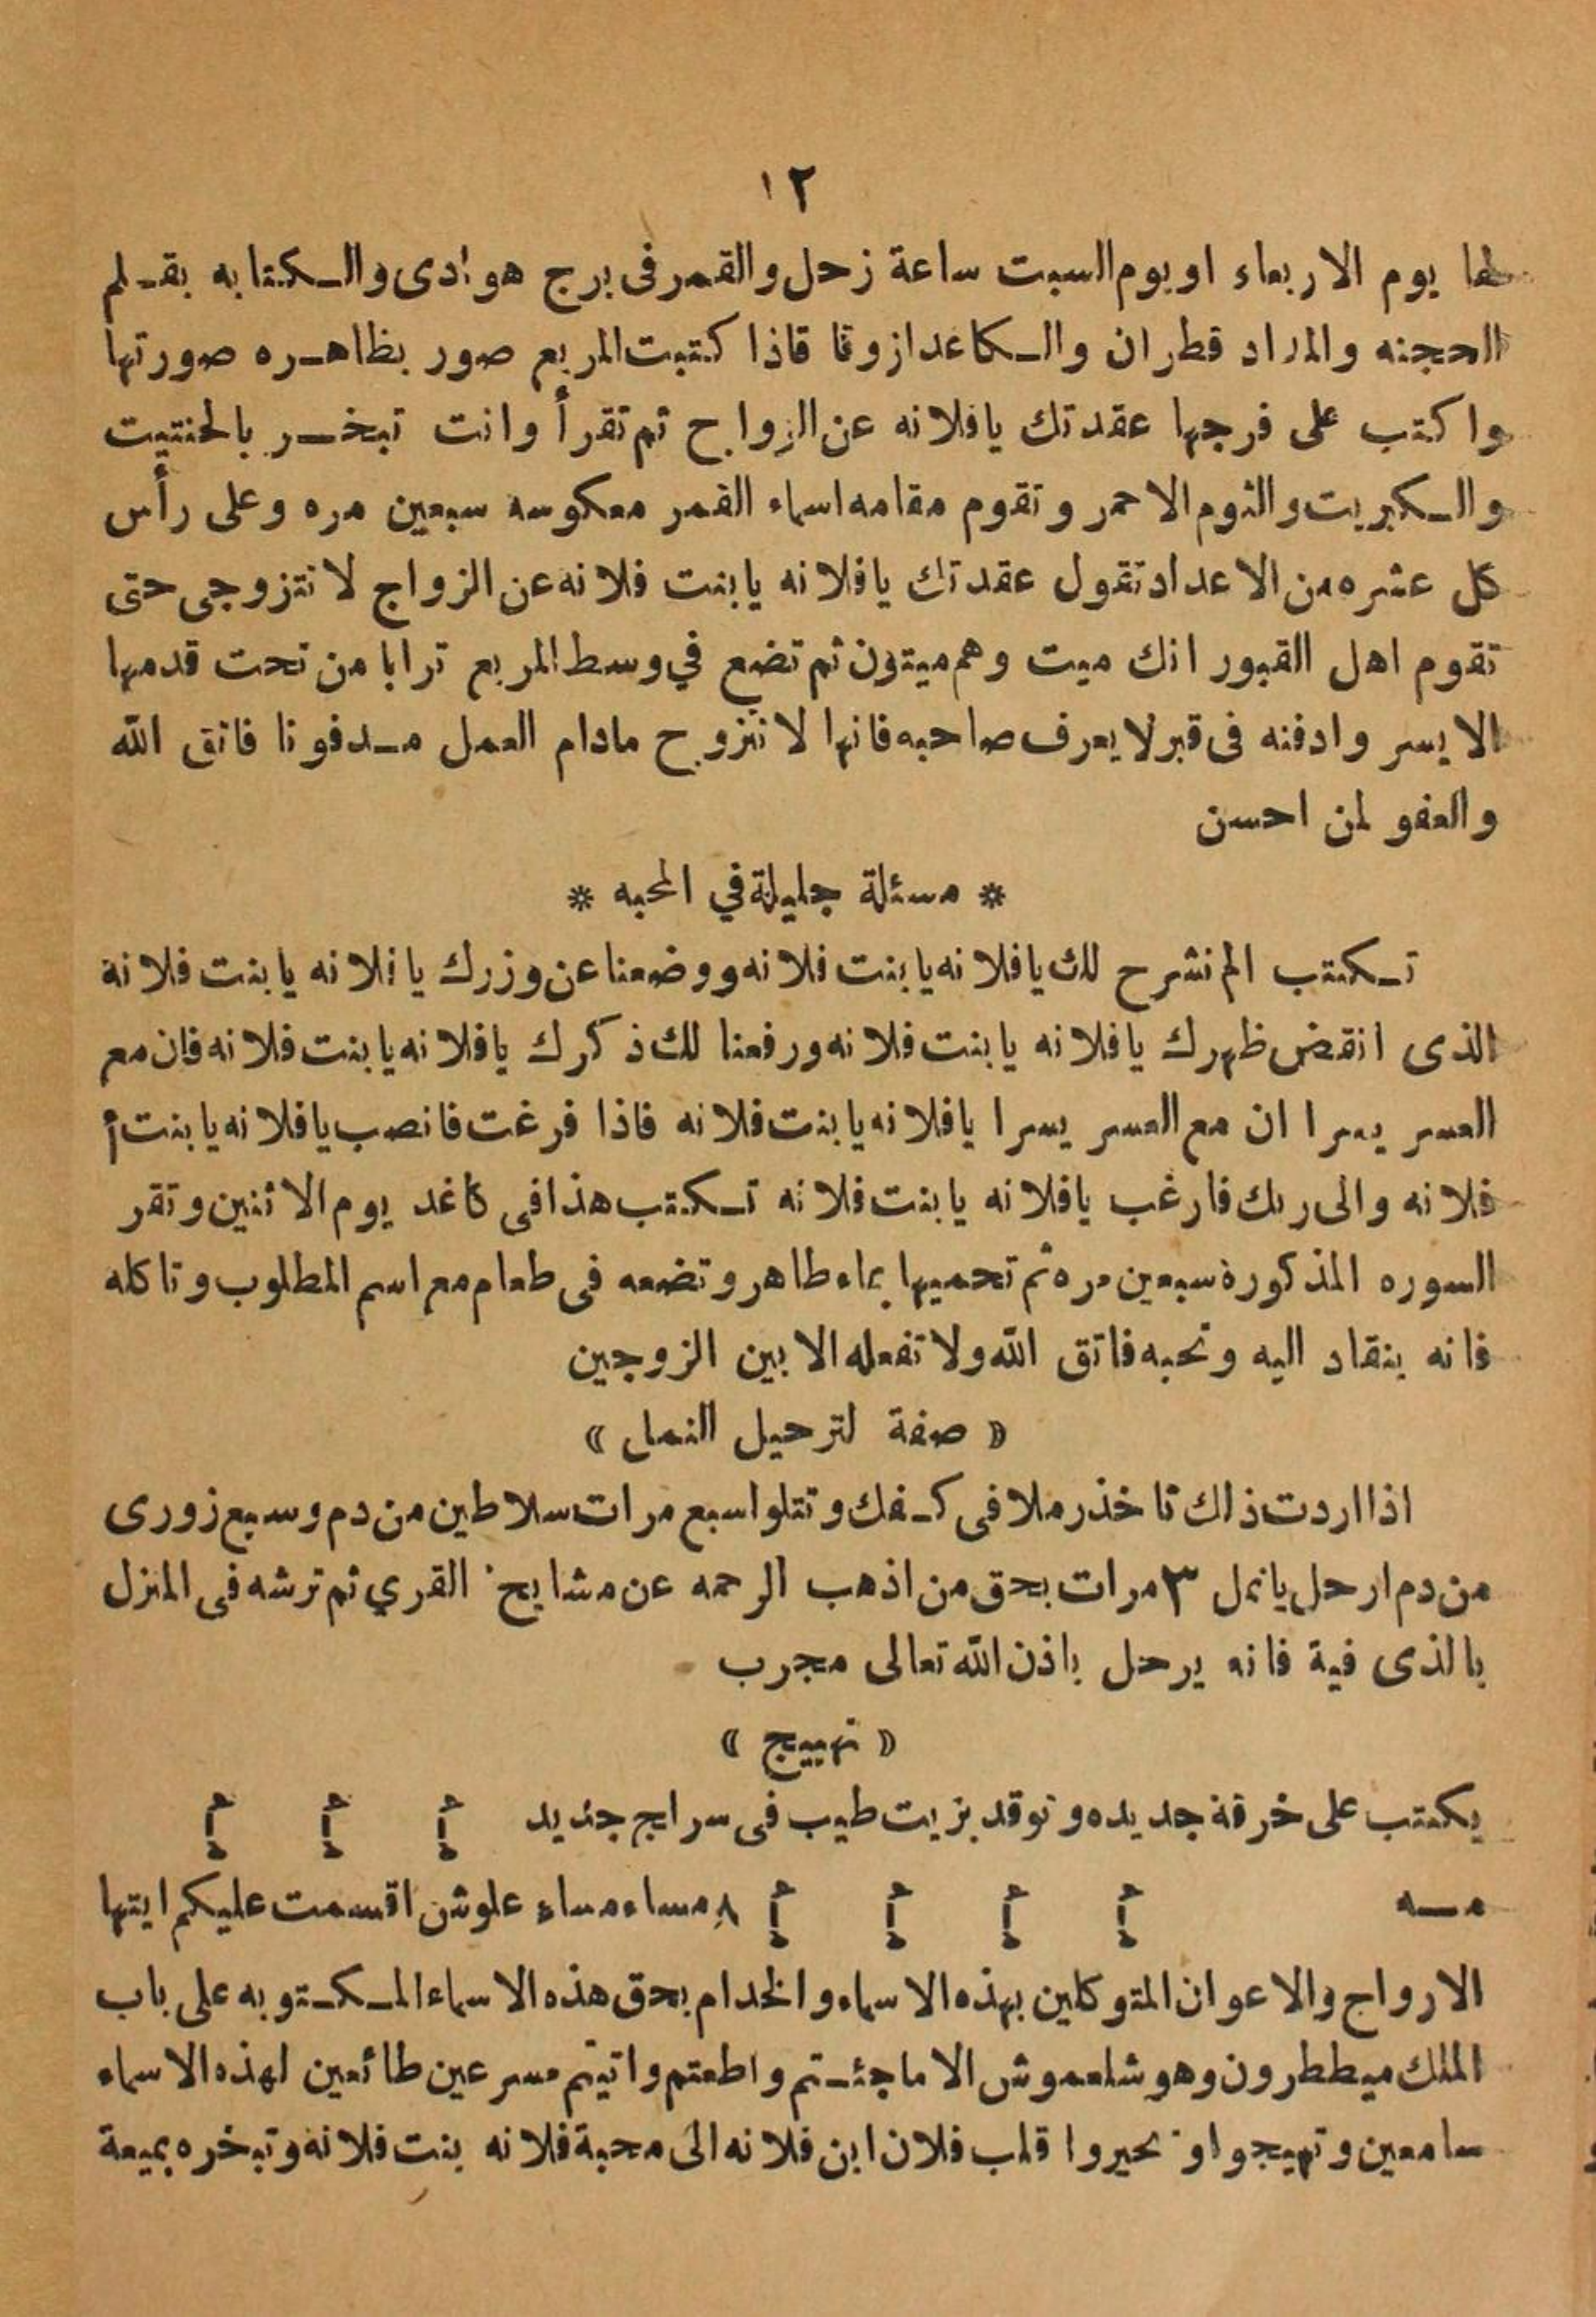 ١٢
يوم الاربعاء او يوم السبت ساعة زحل والقمر فى برج هوادى والكتابه بقلم
الحجنه والمداد قطران والكاعد ازوقا قاذا كتبت المربع صور بظاهره صورتها
واكتب على فرجها عقدتك يافلانه عن الزواج ثم تقرأ وانت تبخر بالحنتيت
والكبريت والثوم الاحمر وتقوم مقامه اسماء القمر معكوسه سبعين مره وعلى رأس
كل عشره من الاعداد تقول عقدتك يافلانه يابنت فلانه عن الزواج لا تتزوجى حتى
تقوم اهل القبور انك ميت وهم ميتون ثم تضع في وسط المربع ترابا من تحت قدمها
الايسر وادفنه فى قبر لا يعرف صاحبه فانها لا تتزوج مادام العمل مدفونا فاتق الله
والعفو لمن احسن
* مسئلة جليلة في المحبه *
تكتب الم نشرح لك يافلانه يابنت فلانه ووضعنا عن وزرك يا فلانه يابنت فلانة
الذى انقض ظهرك يافلانه يابنت فلانه ورفعنا لك ذكرك يافلانه يابنت فلانه فان مع
العسر يسرا ان مع العسر يسرا يافلانه يابنت فلانه فاذا فرغت فانصب يافلانه يابنت أ
فلانه والى ربك فارغب يافلانه يابنت فلانه تكتب هذا فى كاغد يوم الاثنين وتقر
السوره المذكورة سبعين مره ثم تحميها بماء طاهر وتضعه فى طعام مع اسم المطلوب وتاكله
فانه ينقاد اليه وتحبه فاتق الله ولا تفعله الا بين الزوجين
« صفة لترحيل النمل »
اذا اردت ذاك تاخذ رملا فى كفك وتتلوا سبع مرات سلاطين من دم وسبع زورى
من دم ارحل يانمل ٣ مرات بحق من اذهب الرحمه عن مشايخ القري ثم ترشه فى المنزل
بالذى فية فانه يرحل باذن الله تعالى مجرب
« تهييج »
يكتب على خرقة جديده وتوقد بزيت طيب فى سراج جديد
مه ٨ مساء مساء علوش اقسمت عليكم ايتها
الارواج والاعوان المتوكلين بهذه الاسماء والخدام بحق هذه الاسماء المكتوبه على باب
الملك ميططرون وهو شلعموش الا ما جئتم واطعتم واتيتم مسرعين طائعين لهذه الاسماء
سامعين وتهيجوا وتحيروا قلب فلان ابن فلانه الى محبة فلانه بنت فلانه وتبخره بميعة